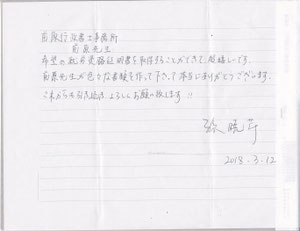 前原行政書士事務所
前原先生
希望の就労資格証明書を取得することができて、嬉しいです。
前原先生が色々な書類を作って下さって本当にありがとうございます。
これからも引き続き よろしくお願い致します!!
2018.3.12